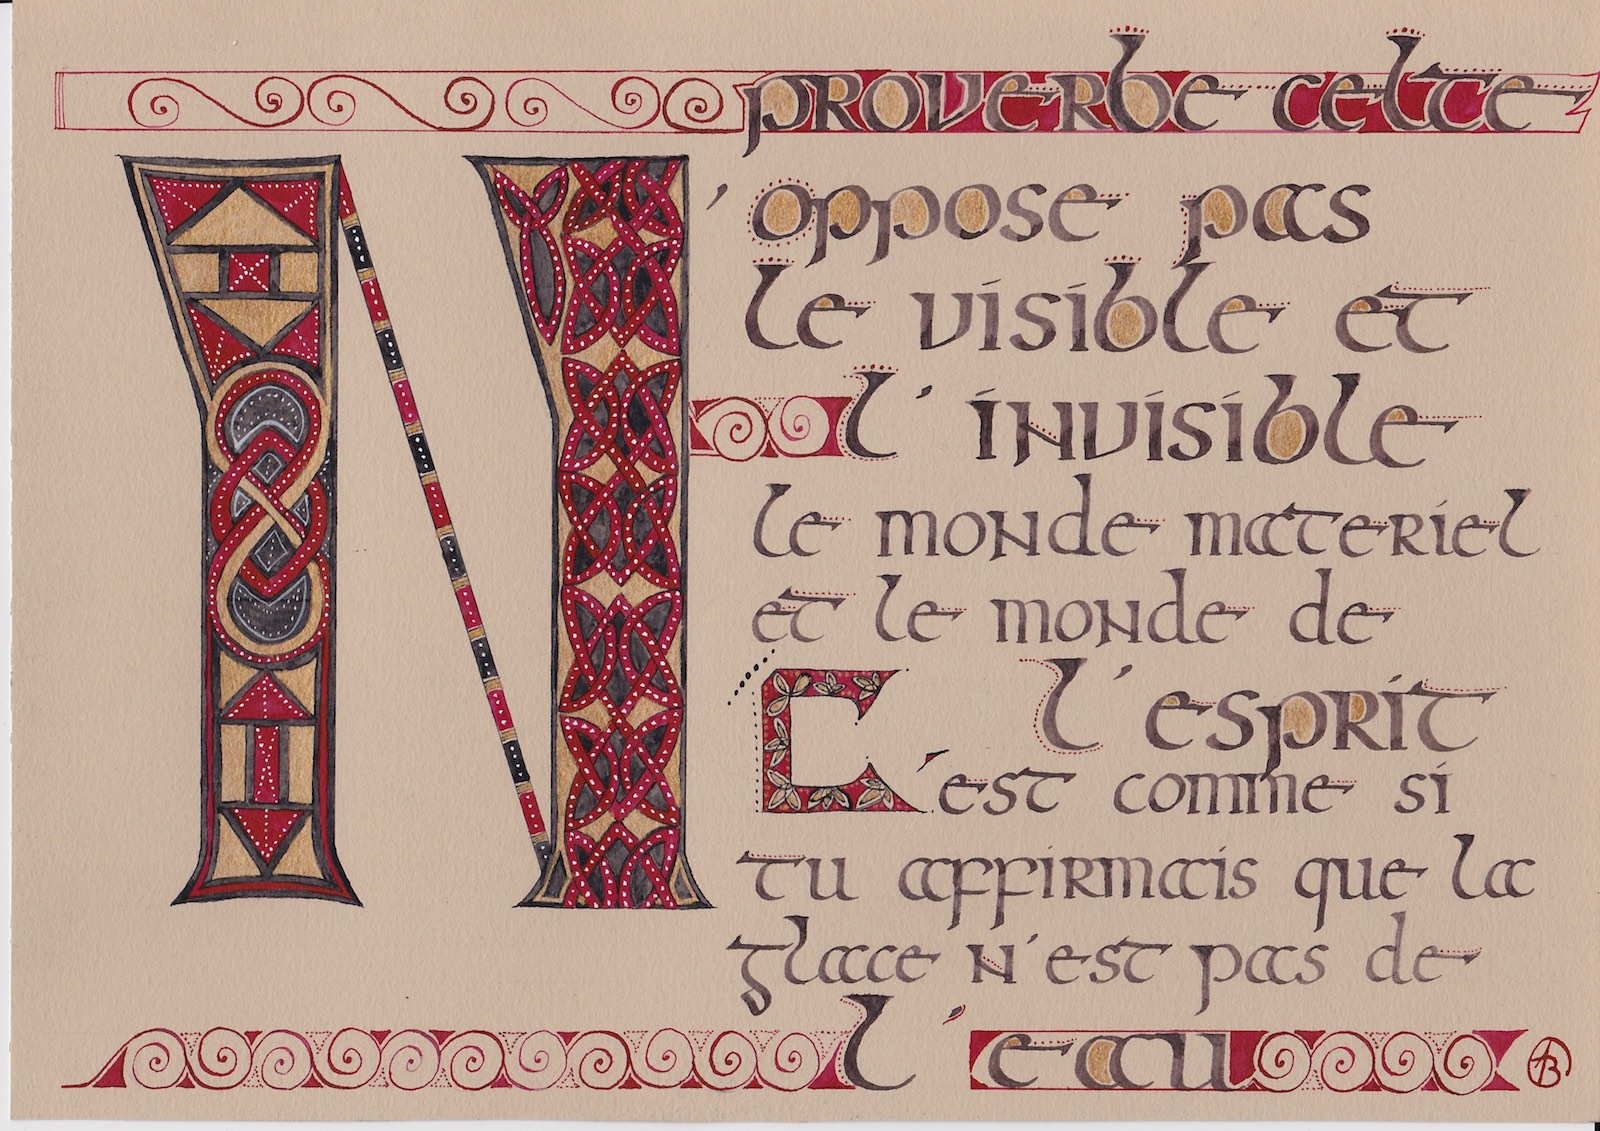 proverbe celte
N'oppose pas
le visible et
l'invisible
le monde materiel
et le monde de
l'esprit
C'est comme si
tu affirmais que la
glace n'est pas de
l'eau
AB